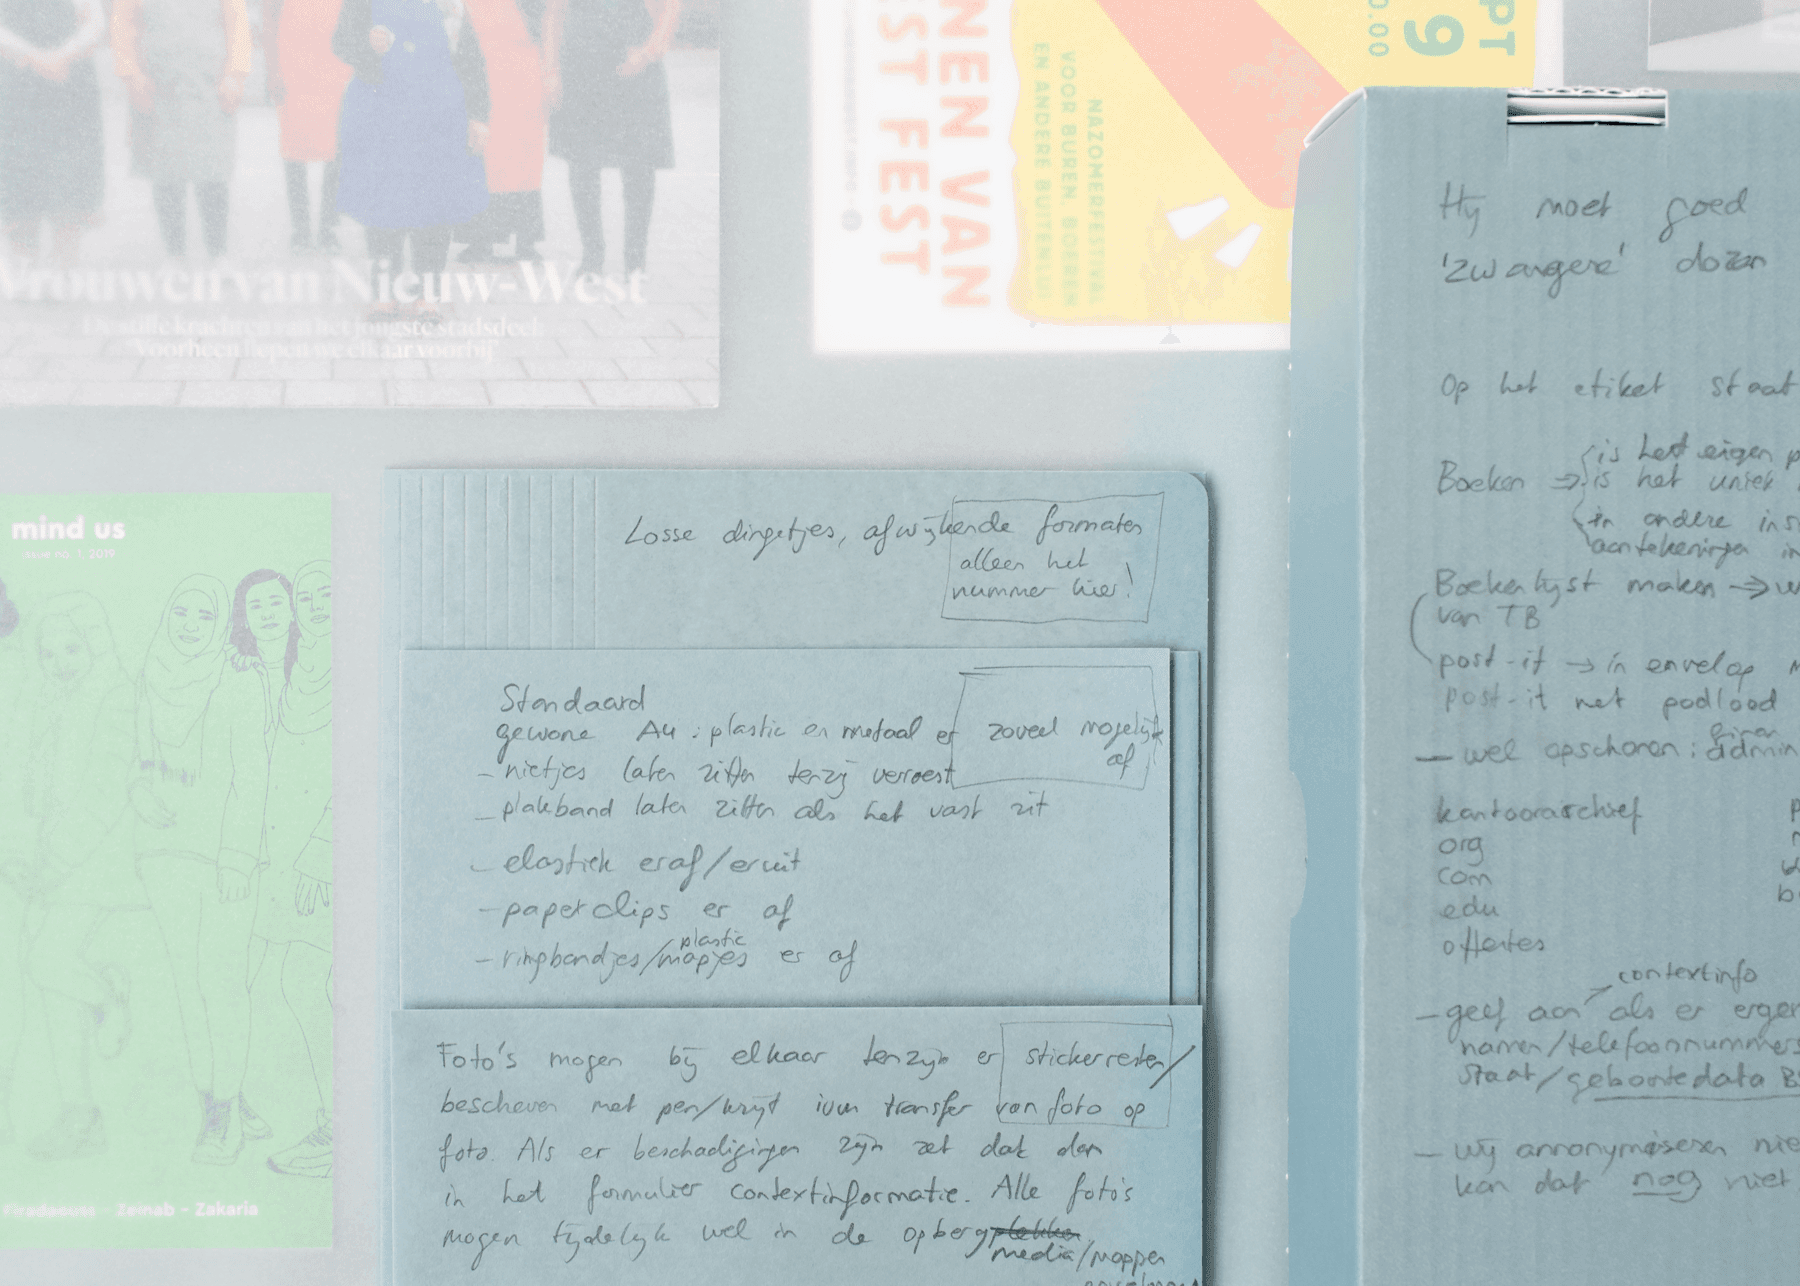 Vrouwen van Nieuw-West
De stille krachten van het jongste stadsdeel
Voorheen liepen we elkaar voorbij
NEN VAN
ST FEST
NAZOMERFESTIVAL
VOOR BUREN, BOEREN
EN ANDERE BUITENLUI
PT
9
0.00
mind us
issue no. 1, 2019
Firadaouss - Zeinab - Zakaria
Losse dingetjes, afwijkende formaten
alleen het
nummer hier!
Standaard
gewone A4: plastic en metaal er zoveel mogelijk
af
- nietjes laten zitten tenzij verroest
- plakband laten zitten als het vast zit
- elastiek eraf/eruit
- paperclips er af
- ringbandjes/plastic mapjes er af
Foto's mogen bij elkaar tenzij er stickerresten/
beschreven met pen/krijt ivm transfer van foto op
foto. Als er beschadigingen zijn zet dat dan
in het formulier contextinformatie. Alle foto's
mogen tijdelijk wel in de opbergplekken
media/mappen
Hij moet goed
'zwangere' dozen
Op het etiket staat
is het eigen p
Boeken → is het uniek
in andere ins
aantekeningen in
Boekenlijst maken → w
van TB
post-it → in envelop
post-it met potlood
- wel opschonen: admin
kantoorarchief
org
com
edu
offertes
contextinfo
- geef aan als er ergen
namen/telefoonnummers
staat/geboortedata BS
- wij annonymiseren nie
kan dat nog niet